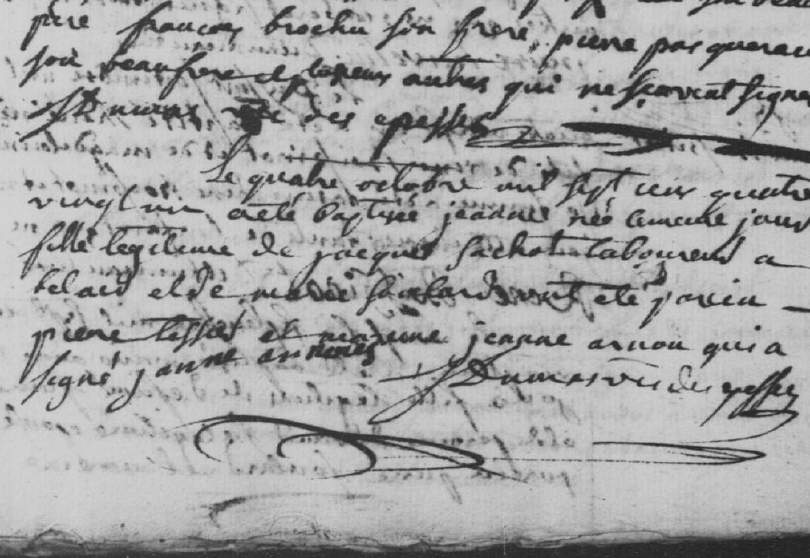 père francois brochu son frere, pierre pasquerau
son beaufrere et plusieurs autres qui ne scavent signer
Dumas vic des epesses
Le quatre octobre mil sept cens quatre
vingt un a été baptisé jeanne née le meme jour
fille legitime de jacques sachot laboureur a
belair et de marie ont été parein
pierre tessier et maraine jeanne arnou qui a
signé janne arnou
Dumas vic des epesses